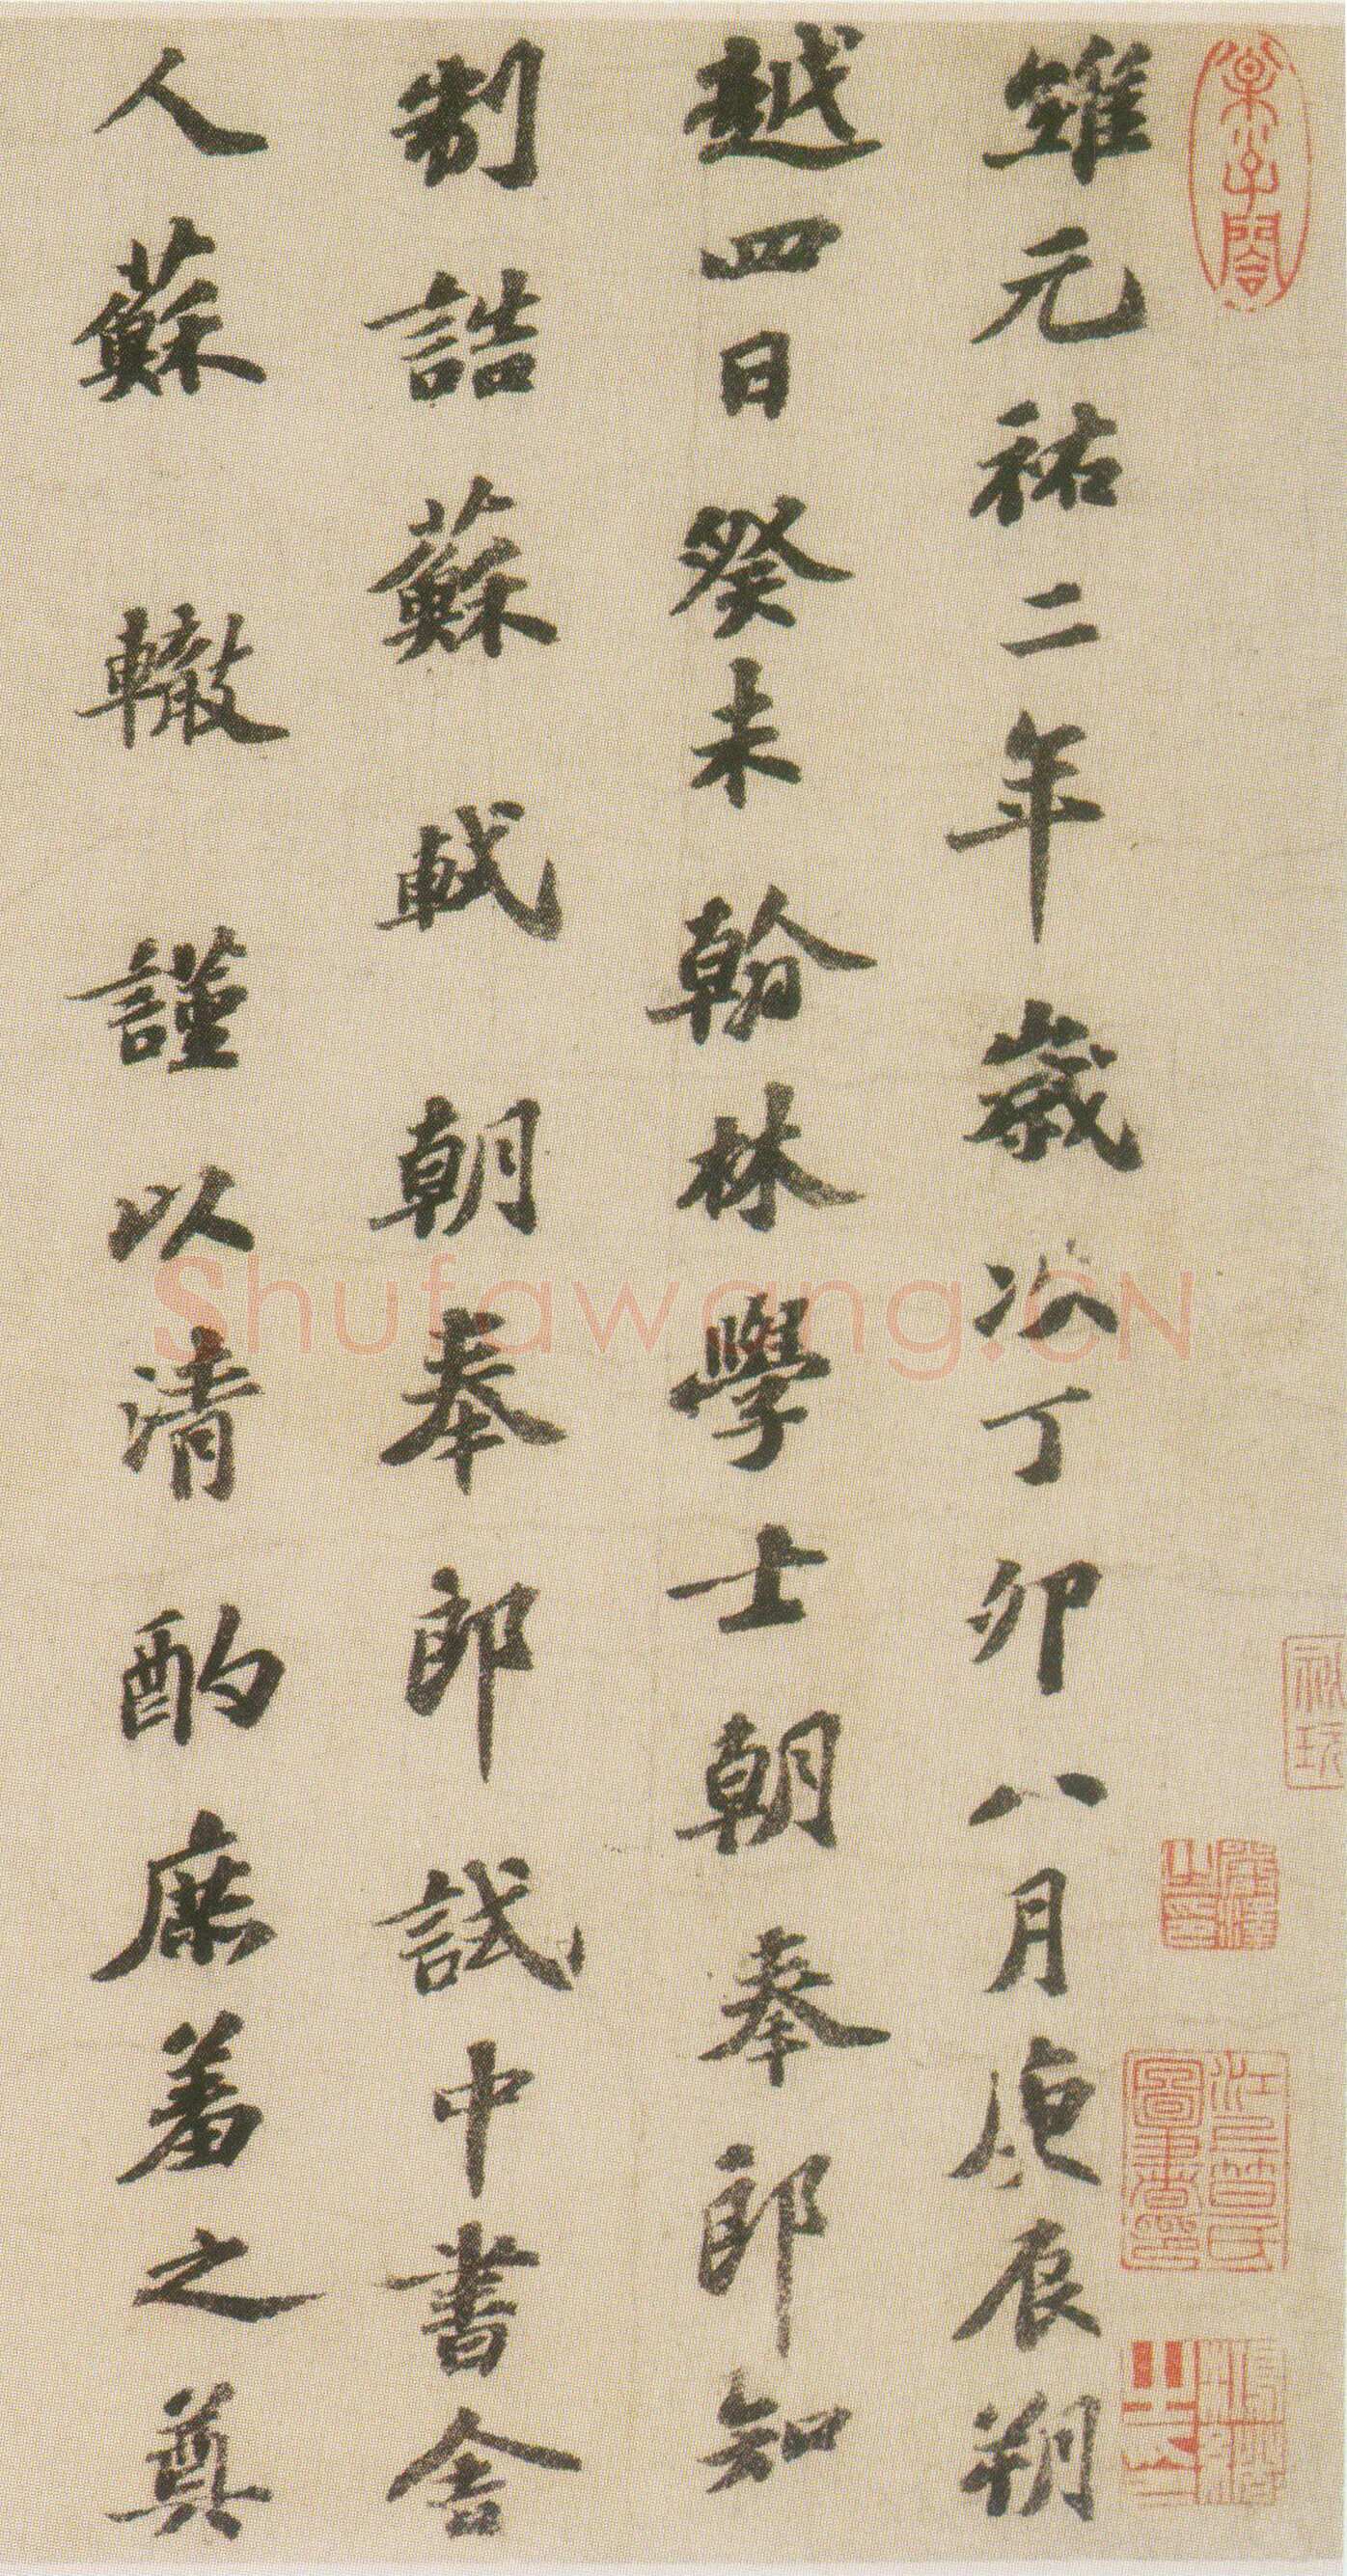 維元祐二年歲次丁卯八月庚辰朔
越四日癸未翰林學士朝奉郎知
制誥蘇軾朝奉郎試中書舍
人蘇轍謹以清酌庶羞之奠
Shufawang.CN